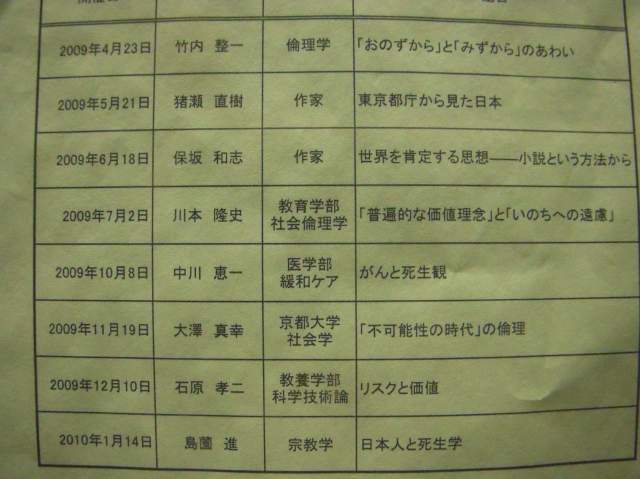 2009年4月23日 竹内 整一 倫理学 「おのずから」と「みずから」のあわい
2009年5月21日 猪瀬 直樹 作家 東京都庁から見た日本
2009年6月18日 保坂 和志 作家 世界を肯定する思想――小説という方法から
2009年7月2日 川本 隆史 教育学部 「普遍的な価値理念」と「いのちへの遠慮」
社会倫理学
2009年10月8日 中川 恵一 医学部 がんと死生観
緩和ケア
2009年11月19日 大澤 真幸 京都大学 「不可能性の時代」の倫理
社会学
2009年12月10日 石原 孝二 教養学部 リスクと価値
科学技術論
2010年1月14日 島薗 進 宗教学 日本人と死生学